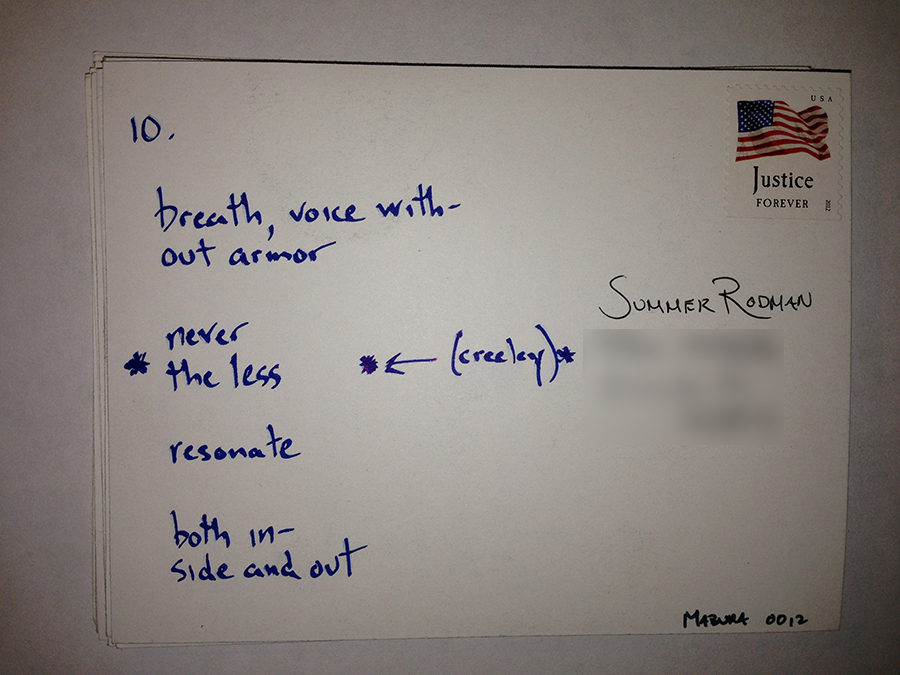 10.
breath, voice with-
out armor
never
* the less * ← (creeley)*
resonate
both in-
side and out
USA
Justice
FOREVER
2012
SUMMER RODMAN
MAZURA 0012